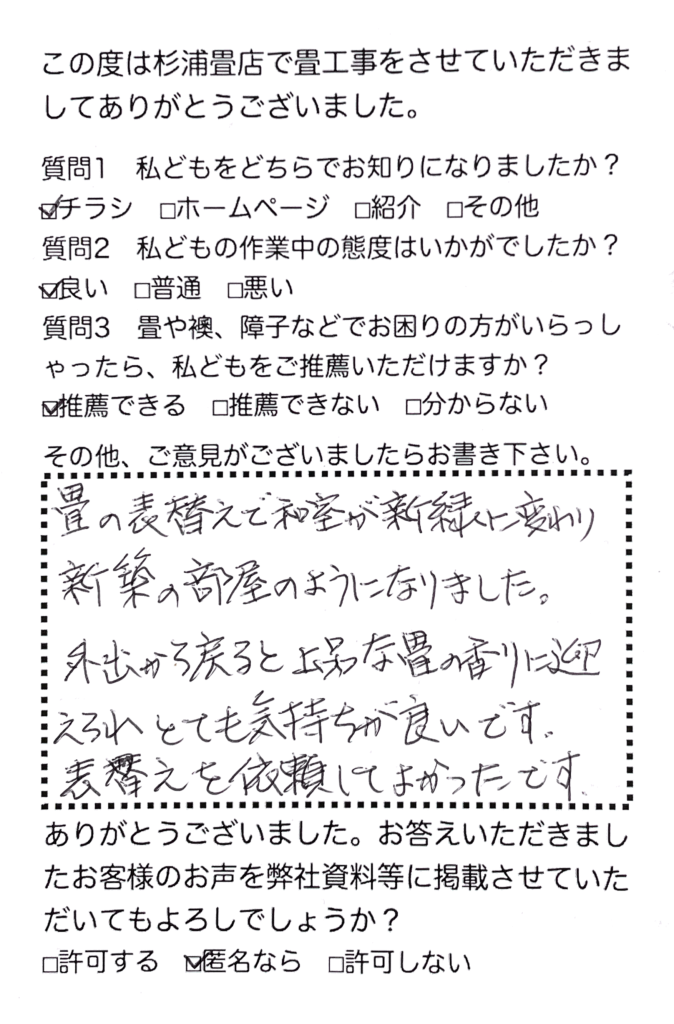 この度は杉浦畳店で畳工事をさせていただきま
してありがとうございました。
質問1　私どもをどちらでお知りになりましたか？
☑チラシ　□ホームページ　□紹介　□その他
質問2　私どもの作業中の態度はいかがでしたか？
☑良い　□普通　□悪い
質問3　畳や襖、障子などでお困りの方がいらっし
ゃったら、私どもをご推薦いただけますか？
☑推薦できる　□推薦できない　□分からない
その他、ご意見がございましたらお書き下さい。
畳の表替えで和室が新緑に変わり
新築の部屋のようになりました。
外出から戻ると上品な畳の香りに迎
えられとても気持ちが良いです。
表替えを依頼してよかったです.
ありがとうございました。お答えいただきまし
たお客様のお声を弊社資料等に掲載させていた
だいてもよろしでしょうか？
□許可する　☑匿名なら　□許可しない